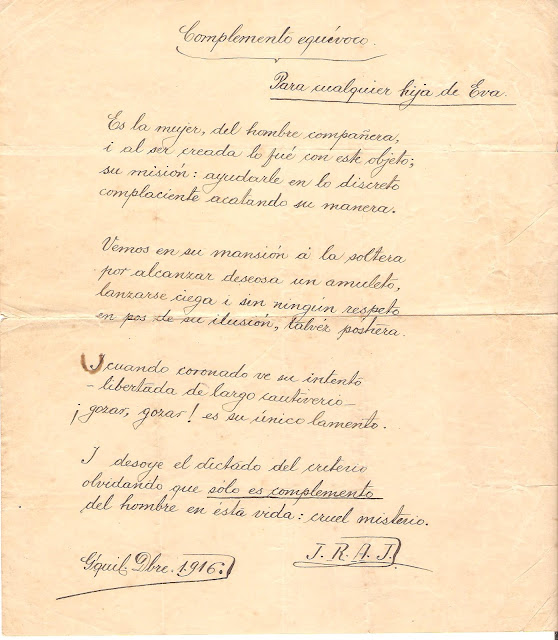 Complemento equívoco.
Para cualquier hija de Eva.
Es la mujer, del hombre compañera,
i al ser creada lo fué con este objeto;
su misión: ayudarle en lo discreto
complaciente acatando su manera.
Vemos en su mansión á la soltera
por alcanzar deseosa un amuleto,
lanzarse ciega i sin ningún respeto
en pos de su ilusión, talvéz postrera.
I cuando coronado ve su intento
—libertada de largo cautiverio—
¡gozar, gozar! es su único lamento.
I desoye el dictado del criterio
olvidando que sólo es complemento
del hombre en ésta vida: cruel misterio.
J. R. A. J.
G'quil. Dbre. 1916.